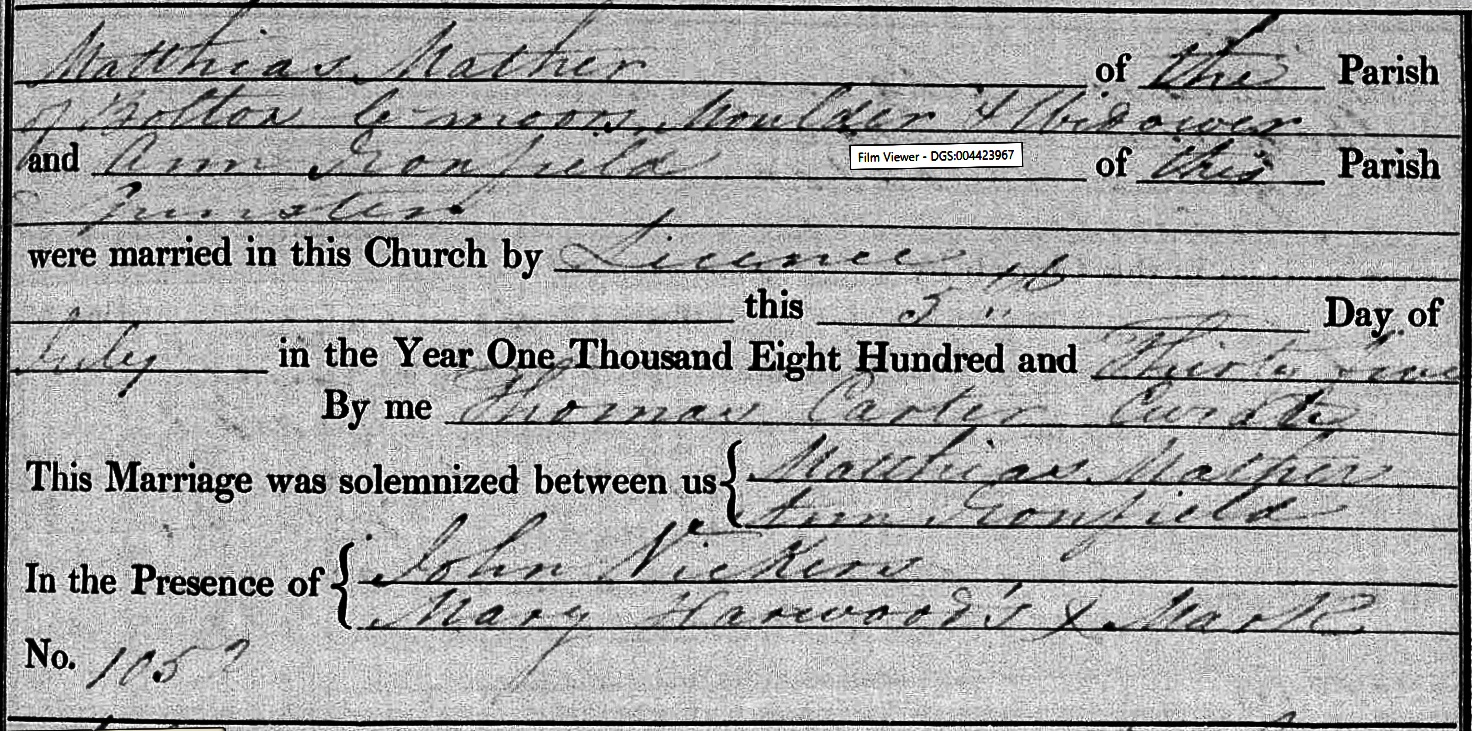 Matthias Mather of this Parish
of Bolton le moors Moulder & Widower
and Ann Ironfield of this Parish
Spinster
were married in this Church by Licence
this 5th Day of
July in the Year One Thousand Eight Hundred and Thirty
By me Thomas Carter Curate
This Marriage was solemnized between us Matthias Mather
Ann Ironfield
In the Presence of John Vickers
Mary Harwood's X Mark
No. 105
Film Viewer - DGS:004423967